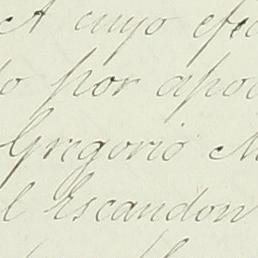 A cuyo efe
o por apo
Gregorio M
l Escandon